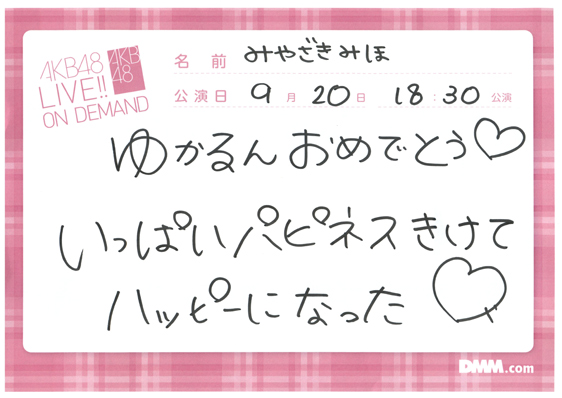 AKB48
LIVE!!
ON DEMAND
AKB
48
名前 みやざきみほ
公演日 9月20日 18:30公演
ゆかるんおめでとう♡
いっぱいパピネスきけて
ハッピーになった♡
DMM.com